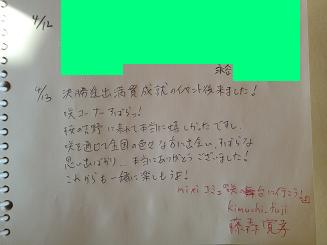 4/12
4/13 決勝進出満貫成就のイベント後来ました!
咲コーナーすばらっ!
桜の吉野に来れて本当に嬉しかったですし、
咲を通じて全国の色々な方に出会い、すばらな
思い出ばかり… 本当にありがとうございました!
これからも一緒に楽しもうよ!
mixi コミュ "咲の舞台に行こう!"
kimuchi_fuji
藤森